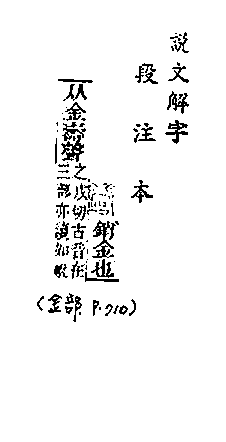 說文解字
段注本
銷金也
从金壽聲
之戍切古音在
三部亦讀如
(金部 P.710)